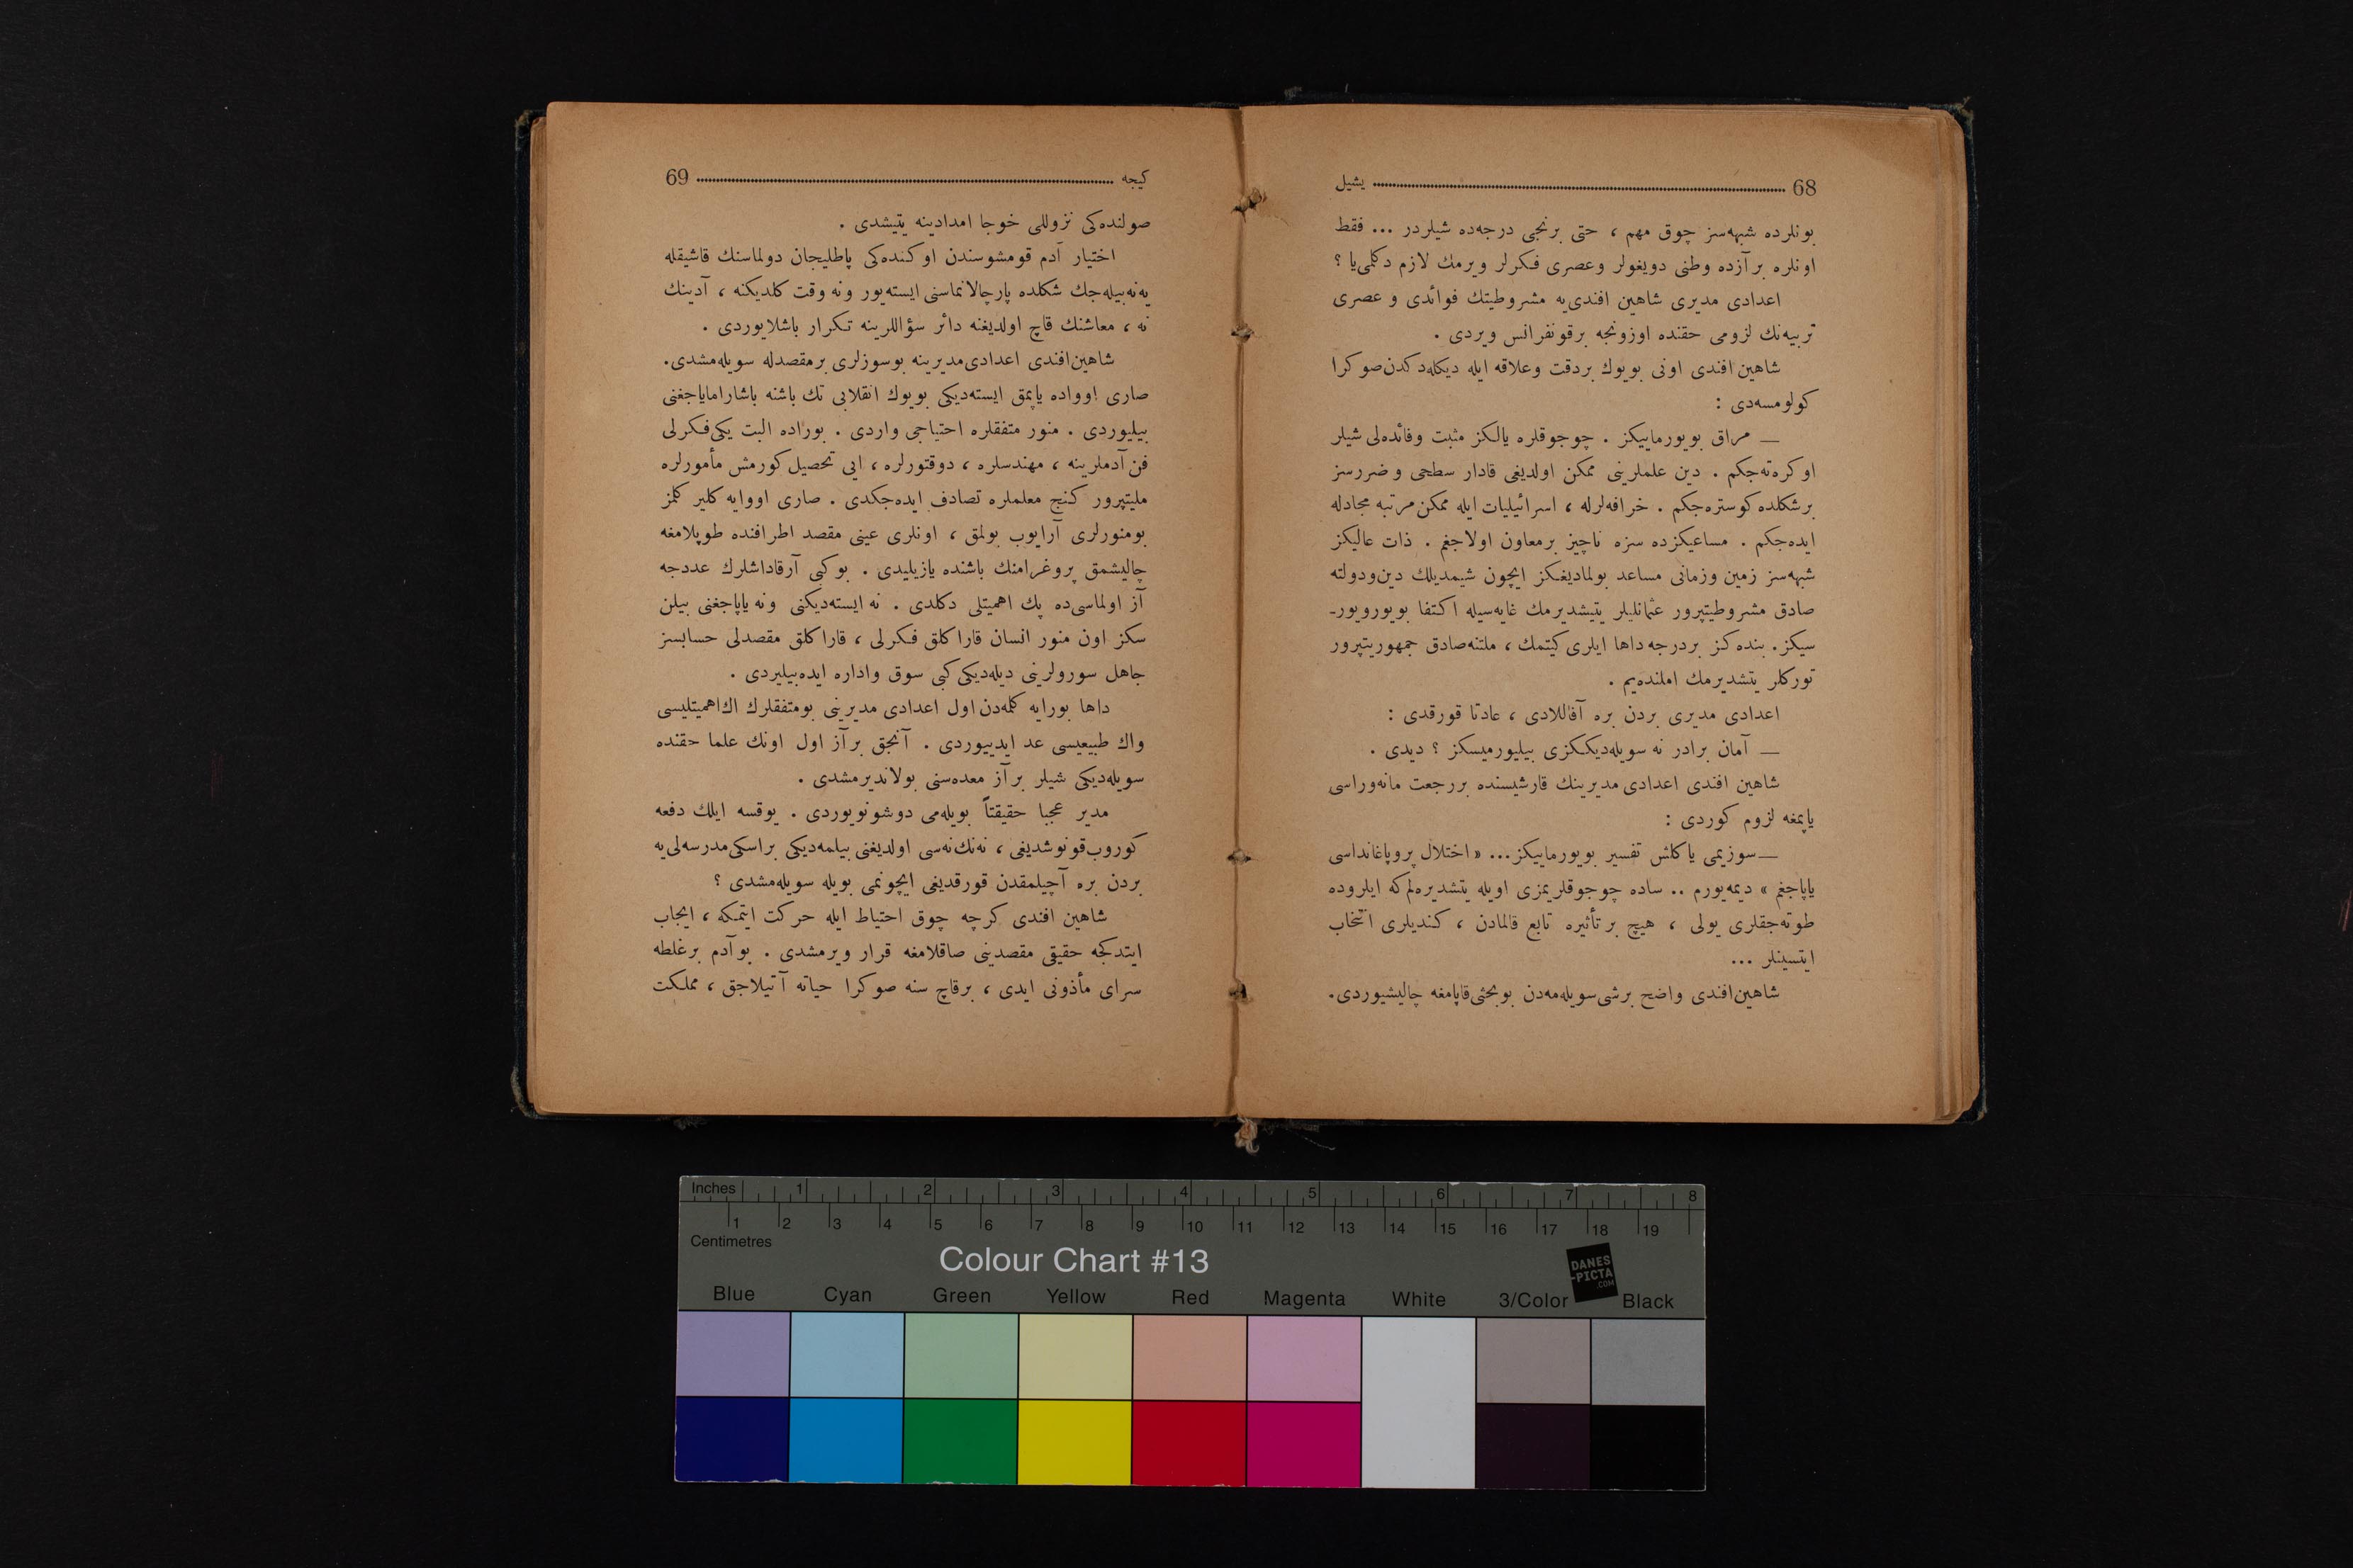 68 يشيل
بونلرده شبهه‌سز چوق مهم ، حتى برنجى درجه‌ده شيلردر ... فقط
اونلره برآزده وطنى دويغولر وعصرى فكرلر ويرمك لازم دكلمى‌يا ؟
اعدادى مديرى شاهين افندى‌يه مشروطيتك فوائدى و عصرى
تربيه‌نك لزومى حقنده اوزونجه برقونفرانس ويردى .
شاهين افندى اونى بويوك بردقت وعلاقه ايله ديكله‌دكدن صوكرا
كولومسه‌دى :
— مراق بويورماييكز . چوجوقلره يالكز مثبت وفائده‌لى شيلر
اوكره‌ته‌جكم . دين علملرينى ممكن اولديغى قادار سطحى و ضررسز
برشكلده كوستره‌جكم . خرافه‌لرله ، اسرائيليات ايله ممكن مرتبه مجادله
ايده‌جكم . مساعيكزده سزه ناچيز برمعاون اولاجغم . ذات عاليكز
شبهه‌سز زمين وزمانى مساعد بولماديغكز ايچون شيمديلك دين‌ودولته
صادق مشروطيتپرور عثمانليلر يتيشديرمك غايه‌سيله اكتفا بويورويور-
سيكز. بنده‌كز بردرجه داها ايلرى كيتمك ، ملتنه صادق جمهوريتپرور
توركلر يتشديرمك املنده‌يم .
اعدادى مديرى بردن بره آفاللادى ، عادتا قورقدى :
— آمان برادر نه سويله‌ديككزى بيليورميسكز ؟ ديدى .
شاهين افندى اعدادى مديرينك قارشيسنده بررجعت مانه‌وراسى
ياپمغه لزوم كوردى :
— سوزيمى ياكلش تفسير بويورماييكز... « اختلال پروپاغانداسى
ياپاجغم » ديمه‌يورم .. ساده چوجوقلريمزى اويله يتشديره‌لم كه ايلروده
طوته‌جقلرى يولى ، هيچ بر تأثيره تابع قالمادن ، كنديلرى انتخاب
ايتسينلر ...
شاهين‌افندى واضح برشى سويله‌مه‌دن بوبحثى قاپامغه چاليشيوردى.
كيجه 69
صولنده‌كى نزوللى خوجا امدادينه يتيشدى .
اختيار آدم قومشوسندن اوكنده‌كى پاطليجان دولماسنك قاشيقله
يه‌نه‌بيله‌جك شكلده پارچالانماسنى ايسته‌يور ونه وقت كلديكنه ، آدينك
نه ، معاشنك قاچ اولديغنه دائر سؤاللرينه تكرار باشلايوردى .
شاهين‌افندى اعدادى‌مديرينه بوسوزلرى برمقصدله سويله‌مشدى.
صارى اوواده ياپمق ايسته‌ديكى بويوك انقلابى تك باشنه باشاراماياجغنى
بيليوردى . منور متفقلره احتياجى واردى . بوراده البت يكى‌فكرلى
فن آدملرينه ، مهندسلره ، دوقتورلره ، ايى تحصيل كورمش مأمورلره
مليتپرور كنج معلملره تصادف ايده‌جكدى . صارى اووايه كلير كلمز
بومنورلرى آرايوب بولمق ، اونلرى عينى مقصد اطرافنده طوپلامغه
چاليشمق پروغرامنك باشنده يازيليدى . بوكبى آرقاداشلرك عددجه
آز اولماسى‌ده پك اهميتلى دكلدى . نه ايسته‌ديكنى ونه ياپاجغنى بيلن
سكز اون منور انسان قاراكلق فكرلى ، قاراكلق مقصدلى حسابسز
جاهل سورولرينى ديله‌ديكى كبى سوق واداره ايده‌بيليردى .
داها بورايه كلمه‌دن اول اعدادى مديرينى بومتفقلرك اك‌اهميتليسى
واك طبيعيسى عد ايدييوردى . آنجق برآز اول اونك علما حقنده
سويله‌ديكى شيلر برآز معده‌سنى بولانديرمشدى .
مدير عجبا حقيقتاً بويله‌مى دوشونويوردى . يوقسه ايلك دفعه
كوروب‌قونوشديغى ، نه‌نك‌نه‌سى اولديغنى بيلمه‌ديكى براسكى‌مدرسه‌لى‌يه
بردن بره آچيلمقدن قورقديغى ايچونمى بويله سويله‌مشدى ؟
شاهين افندى كرچه چوق احتياط ايله حركت ايتمكه ، ايجاب
ايتدكجه حقيقى مقصدينى صاقلامغه قرار ويرمشدى . بوآدم برغلطه
سراى مأذونى ايدى ، برقاچ سنه صوكرا حياته آتيلاجق ، مملكت
Inches 1 2 3 4 5 6 7 8
1 2 3 4 5 6 7 8 9 10 11 12 13 14 15 16 17 18 19
Centimetres
Colour Chart #13
DANES
-PICTA
.COM
Blue Cyan Green Yellow Red Magenta White 3/Color Black